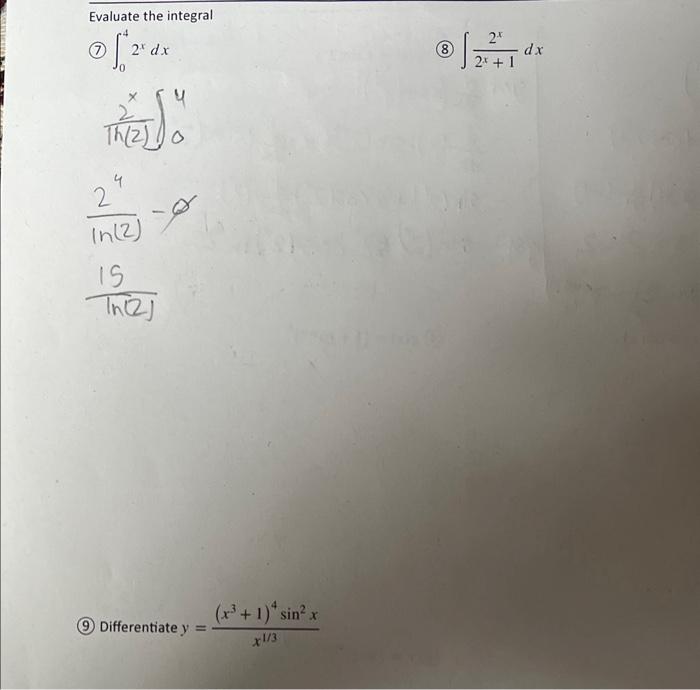 Evaluate the integral
⑦ ∫₀⁴ 2ˣ dx
⑧ ∫ 2ˣ / (2ˣ + 1) dx
2ˣ / ln(2) ]₀⁴
2⁴ / ln(2) -
15 / ln(2)
⑨ Differentiate y = (x³ + 1)⁴ sin² x / x^(1/3)